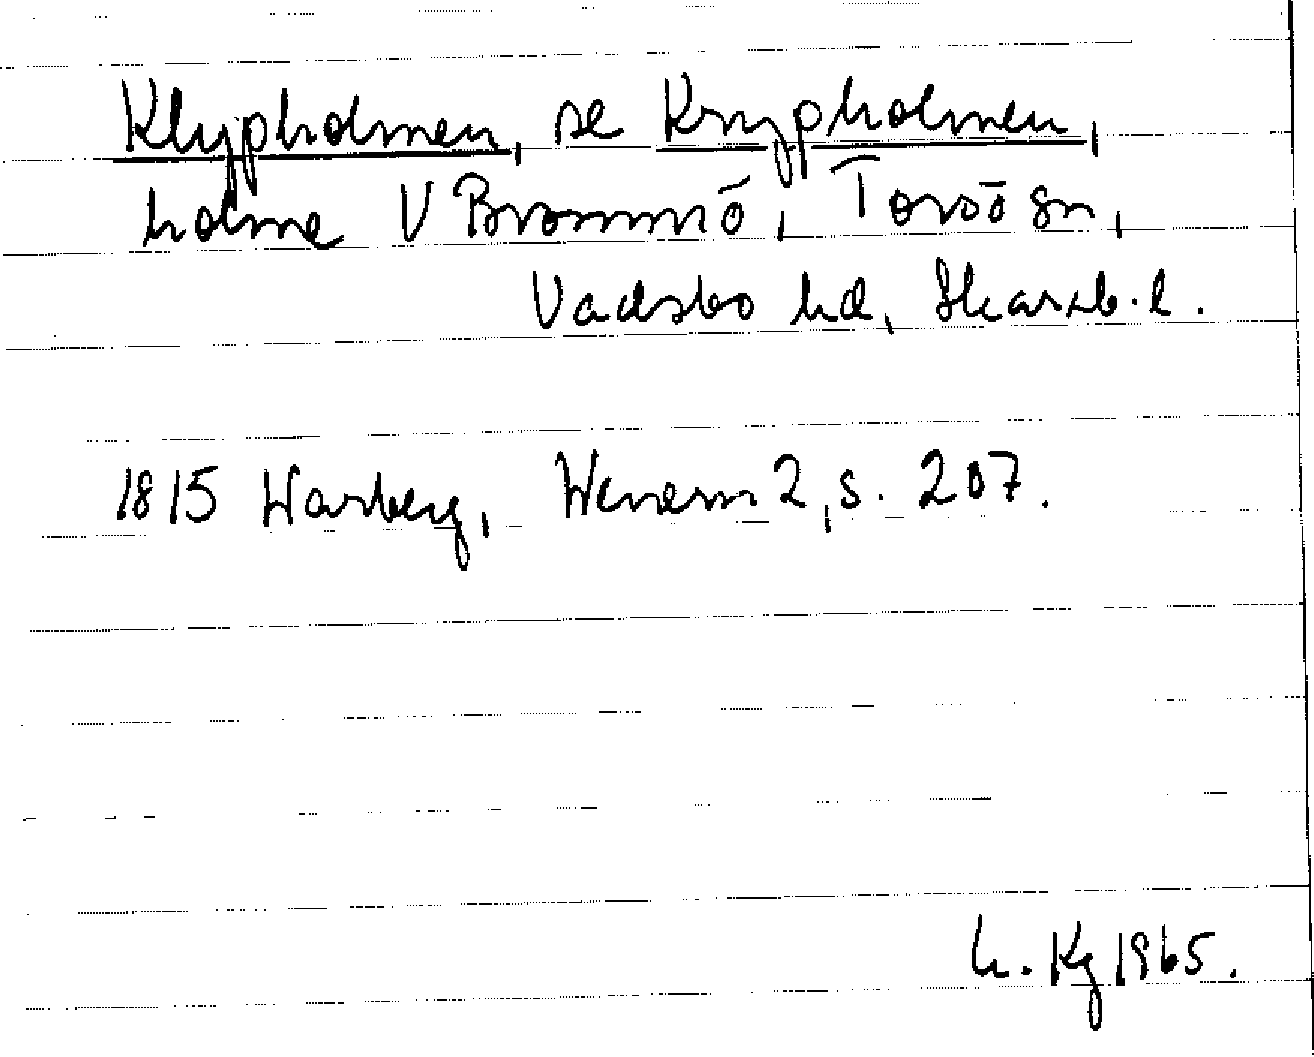 Klypholmen, se Knypholmen,
holme V Brommö, Torsö sn,
Vadsbo hd, Skarab. l.
1815 Warberg, Wenern 2, s. 207.
L. Kg 1965.